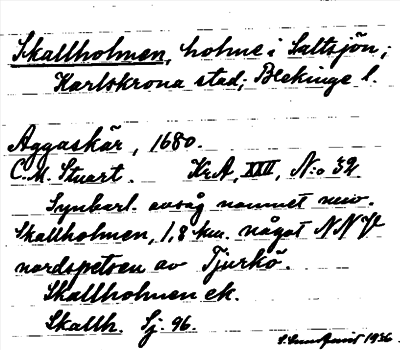 Skallholmen, holme i Saltsjön,
Karlskrona stad, Blekinge l.
Aggaskär, 1680.
C.M. Stuart. KrA, XXII, N:o 32
Synbarl. avsåg namnet nuv.
Skallholmen, 1,8 km. något NNV
nordspetsen av Tjurkö.
Skallholmen ek.
Skallh. Sj. 96.
1936